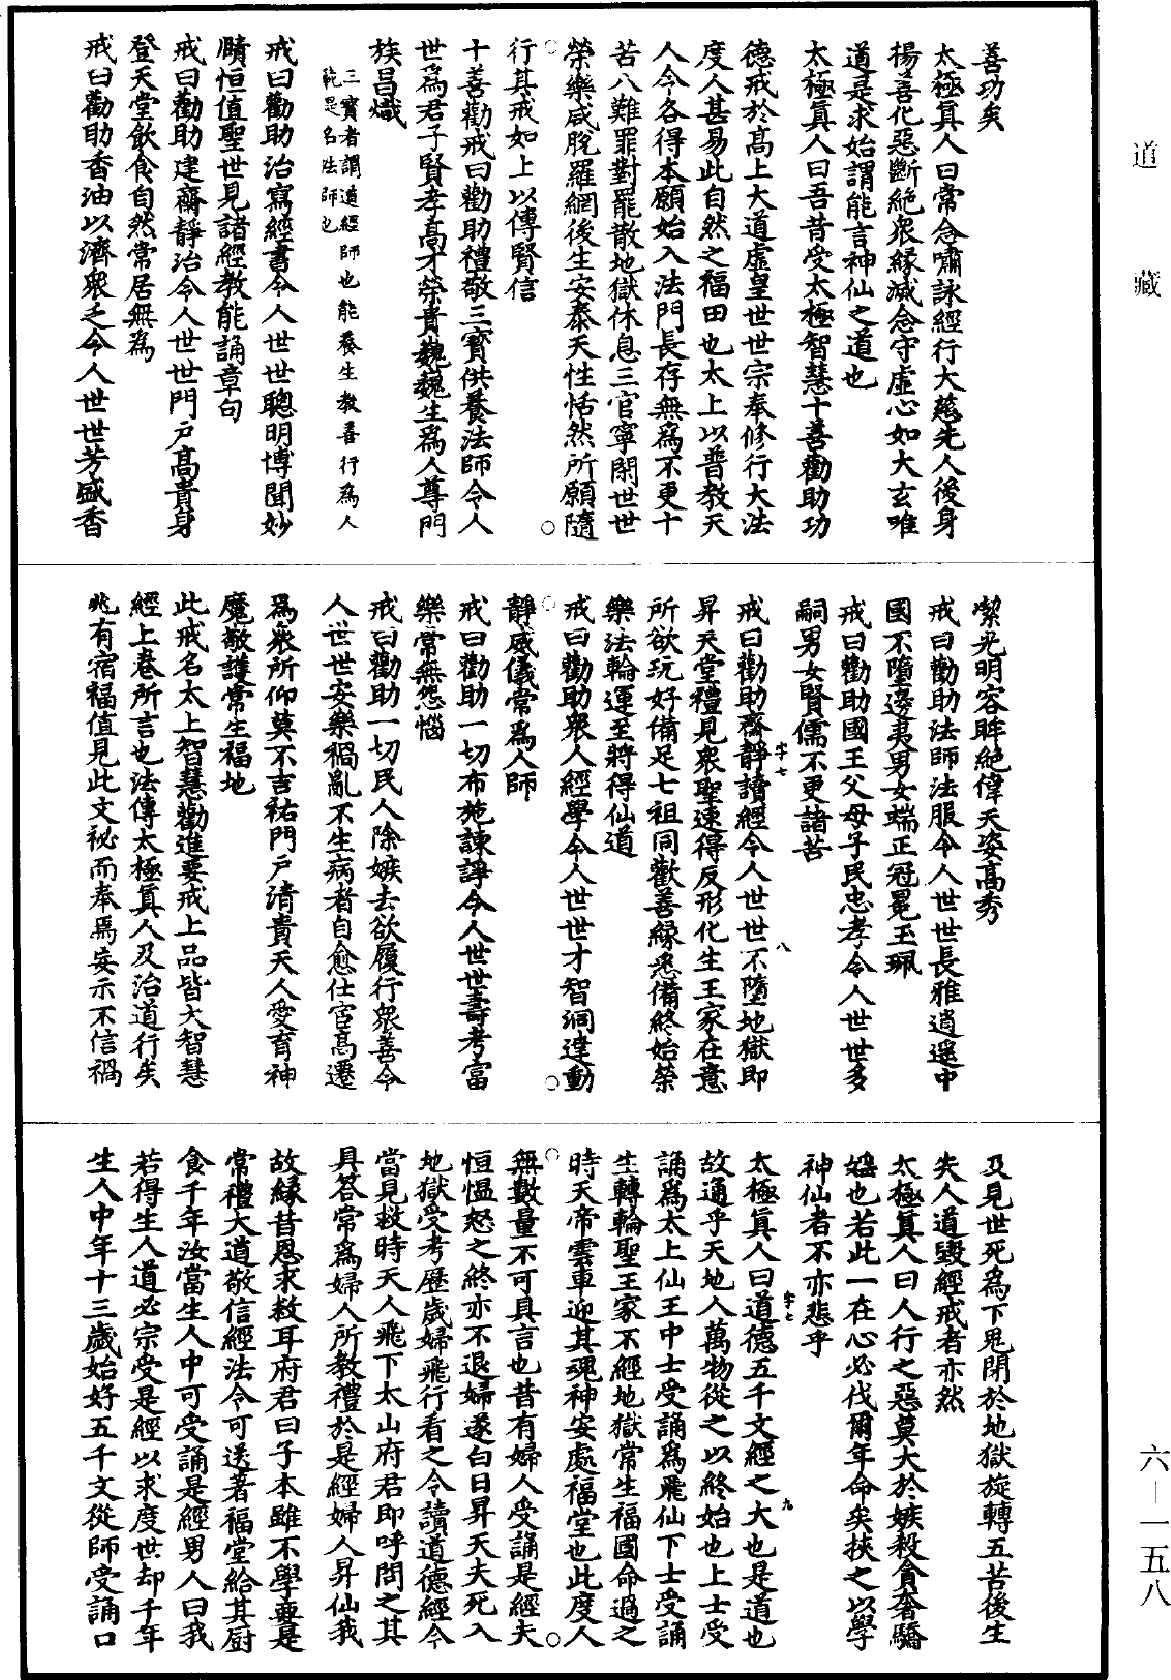 善功矣
太極真人曰常念嘯詠經行大慈先人後身
揚善化惡斷絕衆緣滅念守虛心如大玄唯
道是求始謂能言神仙之道也
太極真人曰吾昔受太極智慧十善勸助功
德戒於高上大道虛皇世世宗奉修行大法
度人甚易此自然之福田也太上以普教天
人令各得本願始入法門長存無爲不更十
苦八難罪對罷散地獄休息三官寧閑世世
榮樂咸脫羅網後生安泰天性恬然所願隨
行其戒如上以傳賢信
十善勸戒曰勸助禮敬三寶供養法師令人
世爲君子賢孝高才榮貴巍巍生爲人尊門
族昌熾
三寶者謂道經師也能養生教善行爲人
範是名法師也
戒曰勸助治寫經書令人世世聰明博聞妙
賾恒值聖世見諸經教能誦章句
戒曰勸助建齋靜治令人世世門戶高貴身
登天堂飲食自然常居無爲
戒曰勸助香油以濟衆乏令人世世芳盛香
潔光明容眸絕偉天姿高秀
戒曰勸助法師法服令人世世長雅逍遥中
國不墮邊夷男女端正冠冕玉珮
戒曰勸助國王父母子民忠孝令人世世多
嗣男女賢儒不更諸苦
戒曰勸助齋靜讀經令人世世不墮地獄即
昇天堂禮見衆聖速得反形化生王家在意
所欲玩好備足七祖同歡善緣悉備終始榮
樂法輪運至將得仙道
戒曰勸助衆人經學令人世世才智洞達動
靜威儀常爲人師
戒曰勸助一切布施諫諍令人世世壽考富
樂常無怨惱
戒曰勸助一切民人除嫉去欲履行衆善令
人世世安樂禍亂不生病者自愈仕宦高遷
爲衆所仰莫不吉祐門戶清貴天人愛育神
魔敬護常生福地
此戒名太上智慧勸進要戒上品皆大智慧
經上卷所言也法傳太極真人及治道行矣
兆有宿福值見此文祕而奉焉妄示不信禍
及見世死爲下鬼閉於地獄旋轉五苦後生
失人道毀經戒者亦然
太極真人曰人行之惡莫大於嫉殺貪奢驕
婬也若此一在心必伐爾年命矣挾之以學
神仙者不亦悲乎
太極真人曰道德五千文經之大也是道也
故通乎天地人萬物從之以終始也上士受
誦爲太上仙王中士受誦爲飛仙下士受誦
生轉輪聖王家不經地獄常生福國命過之
時天帝雲車迎其魂神安處福堂也此度人
無數量不可具言也昔有婦人受誦是經夫
恒愠怒之終亦不退婦遂白日昇天夫死入
地獄受考歷歲婦飛行看之令讀道德經今
當見救時天人飛下太山府君即呼問之其
具答常爲婦人所教禮於是經婦人昇仙我
故緣昔恩求救耳府君曰子本雖不學要是
常禮大道敬信經法今可送著福堂給其厨
食千年汝當生人中可受誦是經男人曰我
若得生人道必宗受是經以求度世却千年
生人中年十三歲始好五千文從師受誦口
道藏
六—一五八
字七
八
字七
九